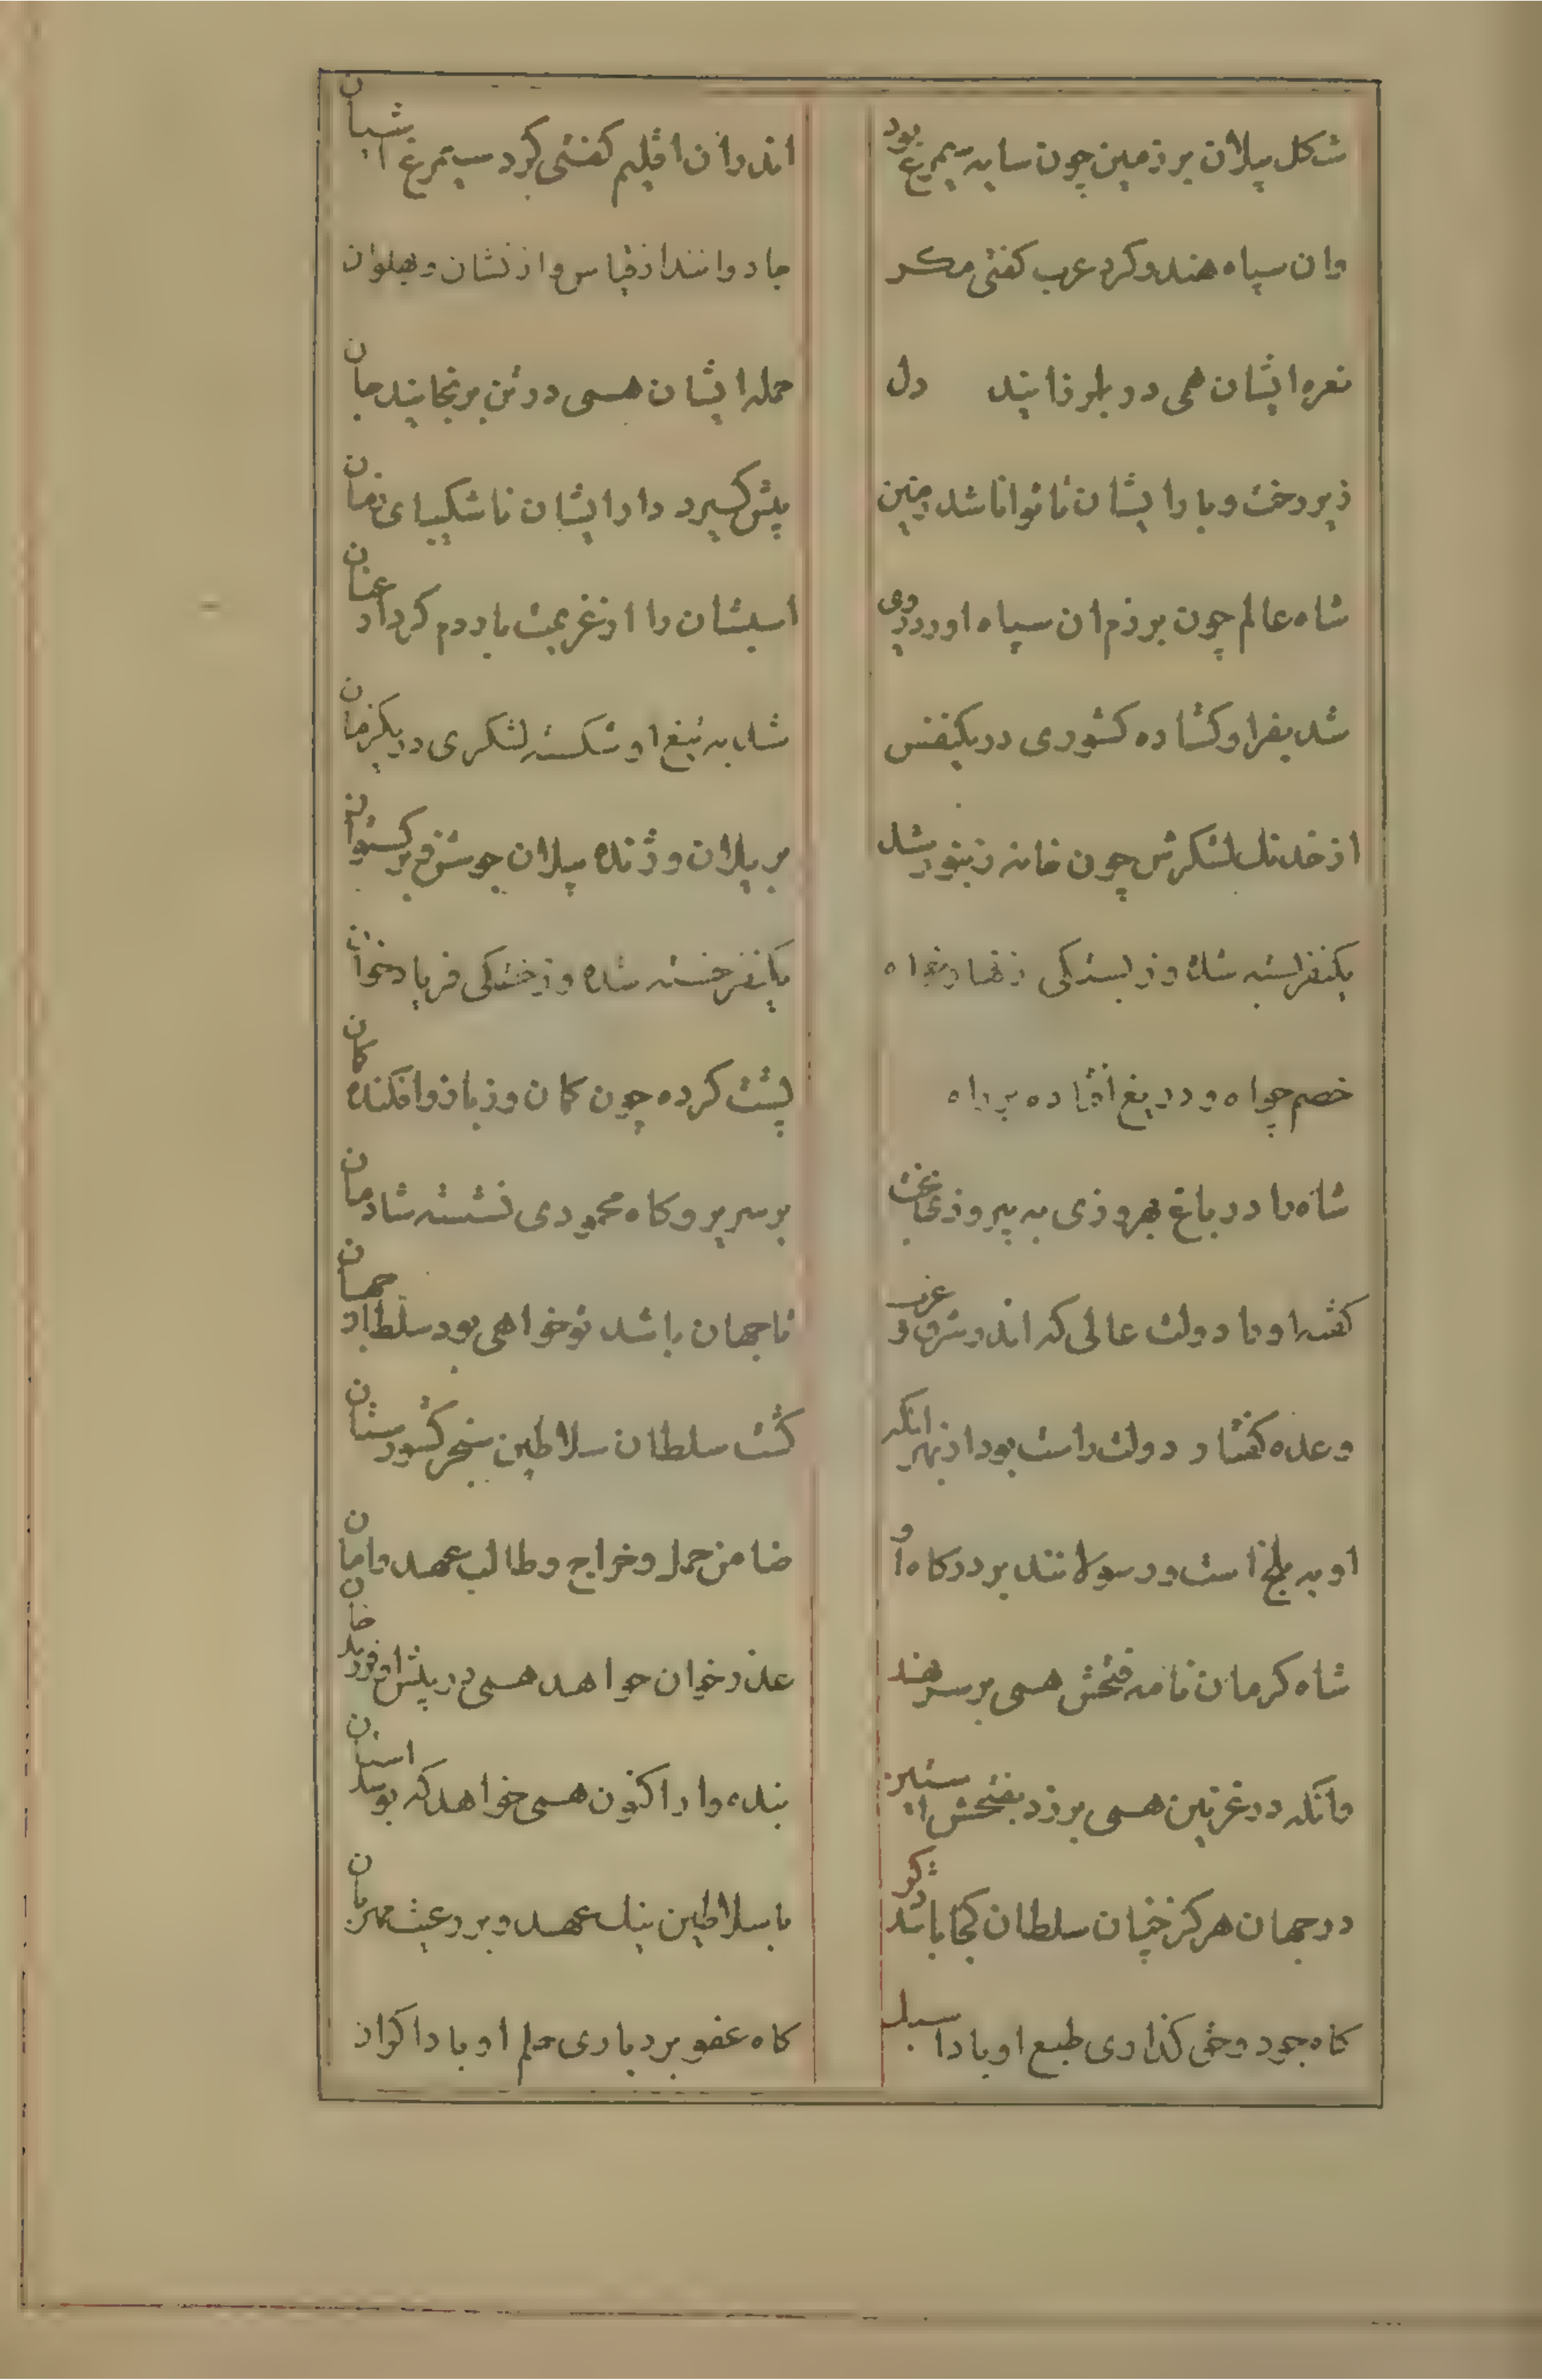 شکل پیلان بر زمین چون سایه سیمرغ بود
اندران اقلیم کفتی کرد سیمرغ اشیان
وان سپاه هندو کرد عرب کفتی مکر
جادوانند از قیاس و از نشان و پهلوان
نعره ایشان همی در بر لرزانید دل
حمله ایشان همی در تن برنجانید جان
زیر رخت و بار ایشان ناتوانا شد زمین
پیش کیرد دار ایشان ناشکیبای زمان
شاه عالم چون برزم ان سپاه اورد روی
اسبشان را از عزیمت باد دم کرد از عنان
شد بفر او کشاده کشوری در یکنفس
شد به تیغ او شکسته لشکری در یکزمان
از خدنک لشکرش چون خانه زنبور شد
بر یلان و ژنده پیلان جوشن و برکستوان
یکنفر بسته شده وز بستکی زنهار خواه
یکنفر خسته شده وز خستکی فریاد خوان
خصم چو اه و دریغ افتاده بر راه
پشت کرده چون کمان وز بازو افکنده کمان
شاه را در باغ بهروزی به پیروزی بخت
بر سریر و کاه محمودی نشسته شادمان
کفته او را دولت عالی که اندر شرق و غرب
تا جهان باشد تو خواهی بود سلطان جهان
وعده کفتار دولت راست بود از بهر انکه
کشت سلطان سلاطین سنجر کشور ستان
او به بلخ است و رسولانند بر درکاه او
ضامن حمل و خراج و طالب عهد و امان
شاه کرمان نامه فتحش همی بر سر نهد
عذر خوان خواهد همی در پیش او فرزند خان
وانکه در غزنین همی برزد بفتحش استین
بنده وار اکنون همی خواهد که بوسد استان
در جهان هرکز چنان سلطان کجا باشد دکر
با سلاطین نیک عهد و بر رعیت مهربان
کاه جود و حق کذاری طبع او باد سبک
کاه عفو بردباری حلم او بادا کران